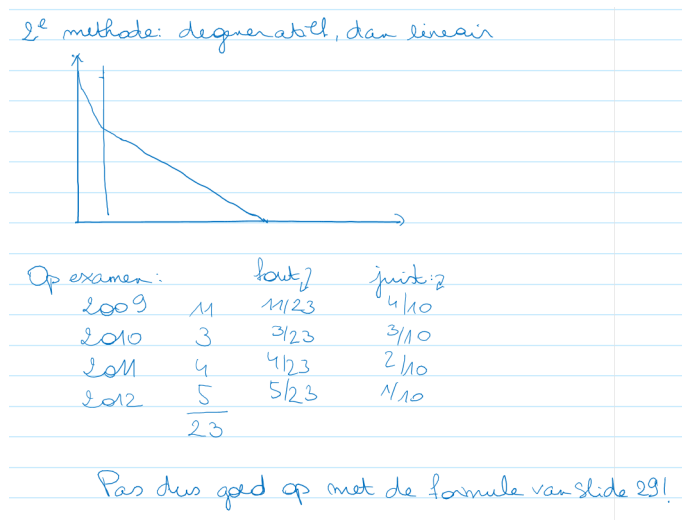 2e methode: degeneratief, dan lineair
Op examen: fout: juist:
2009 11 11/23 4/10
2010 3 3/23 3/10
2011 4 4/23 2/10
2012 5 5/23 1/10
23
Pas dus goed op met de formule van slide 29!